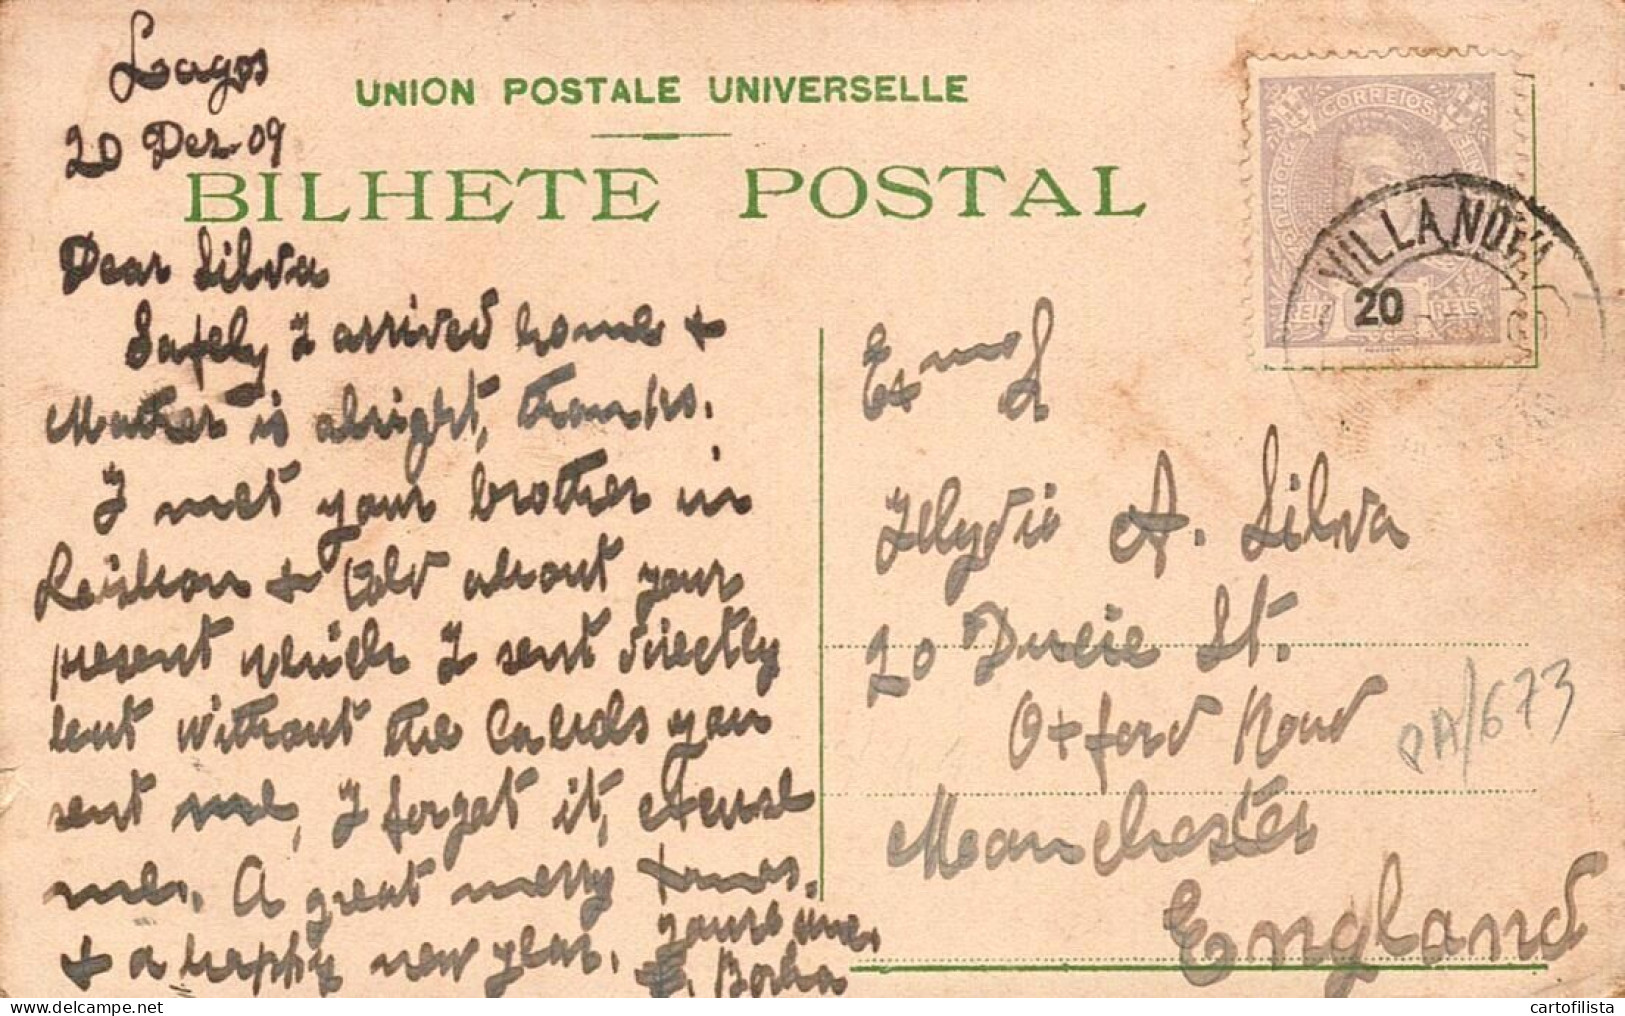 Lagos
20 Dez. 09
UNION POSTALE UNIVERSELLE
BILHETE POSTAL
CORREIOS
REIS
20
Dear Silva
Safely I arrived home +
Mother is alright, thanks.
I met your brother in
Lisbon + told about your
present which I sent directly
but without the Cards you
sent me, I forgot it, excuse
me. A great merry Xmas.
+ a happy new year.
yours ever
Borba
Exmo S
Ilydio A. Silva
20 Ducie St.
Oxford Road
Manchester
England
PA/673
www.delcampe.net
cartofilista